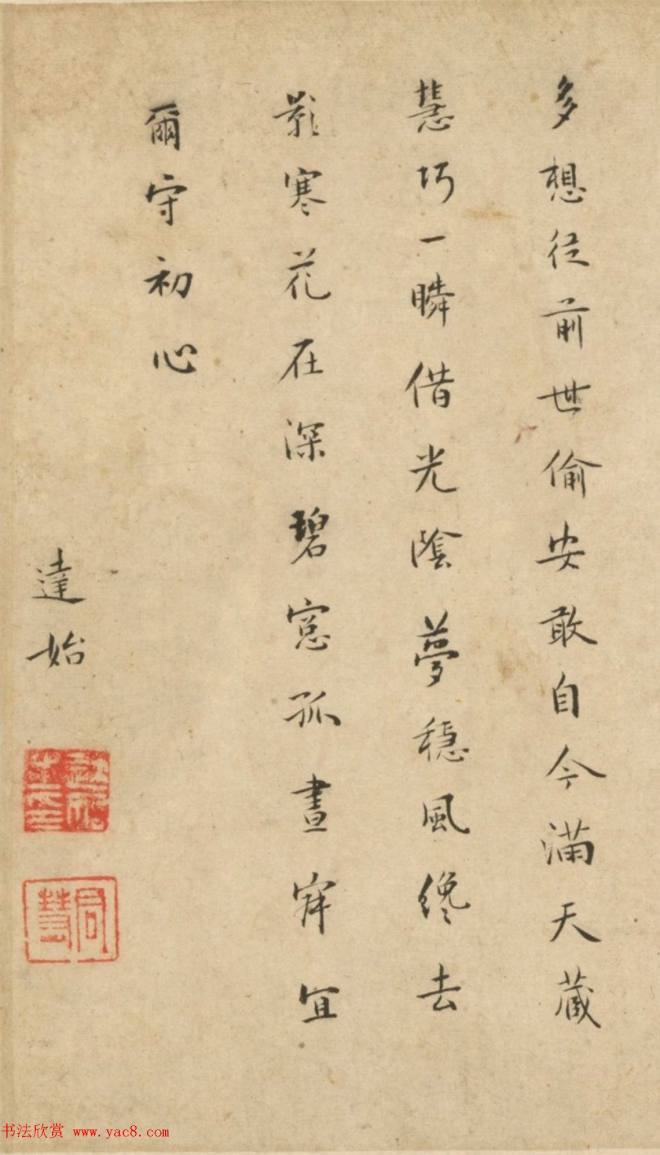 多想從前世偷安敢自今滿天藏
慧巧一瞬借光陰夢穩風纔去
影寒花在深碧窗孤晝寂宜
爾守初心
達始
同慧
书法欣赏 www.yac8.com